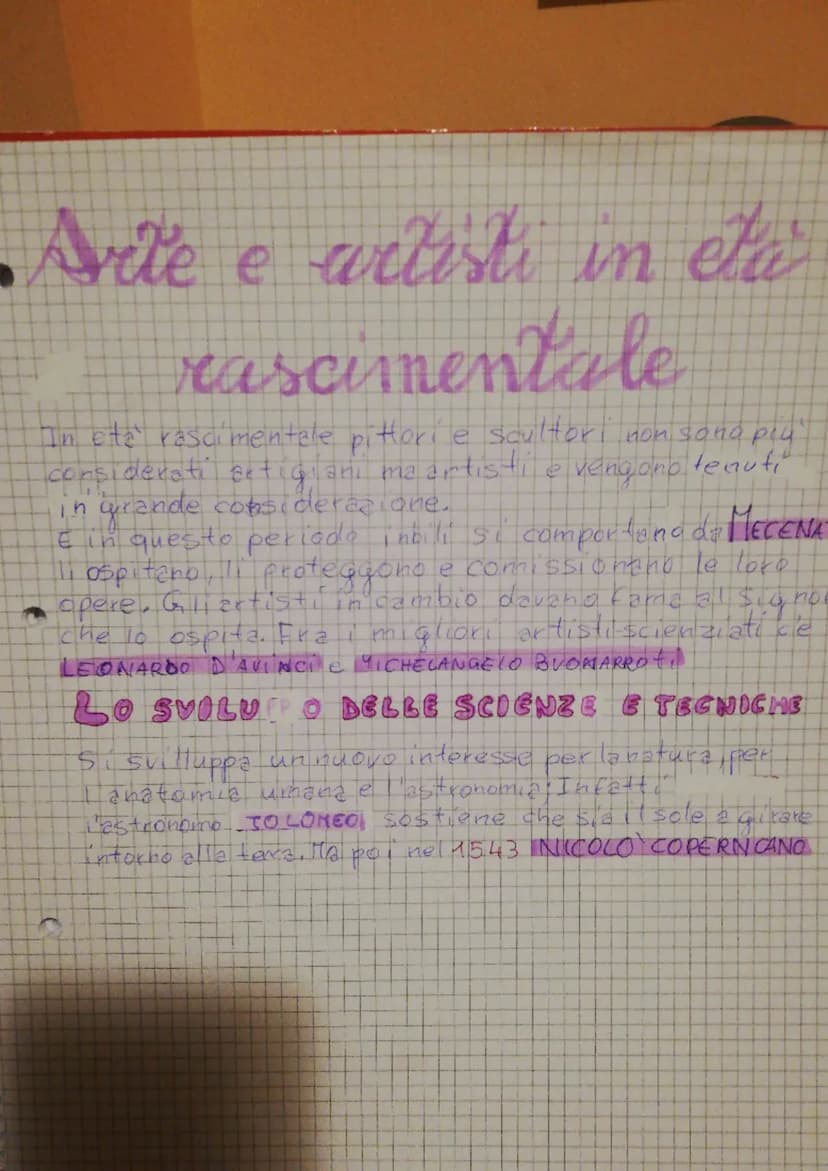 Arte e artisti in età
rascimentale
In età rascimentale pittori e scultori non sono più
considerati artigiani ma artisti e vengono tenuti
in grande considerazione.
E in questo periodo i nbili si comportano da MECENA
li ospitano, li proteggono e comissionano le loro
opere. Gli artisti in cambio davano fama al signor
che lo ospita. Fra i migliori artisti scienziati c'è
LEONARDO D'AVINCI e MICHELANGELO BUONARROTI
LO SVILUPPO DELLE SCIENZE E TECNICHE
Si svilluppa un nuovo interesse per la natura, per
l'anatomia umana e l'astronomia; Infatti
l'astronomo TOLOMEO sostiene che sia il sole a girare
intorno alla terra. Ma poi nel 1543 NICOLO' COPERNICANO